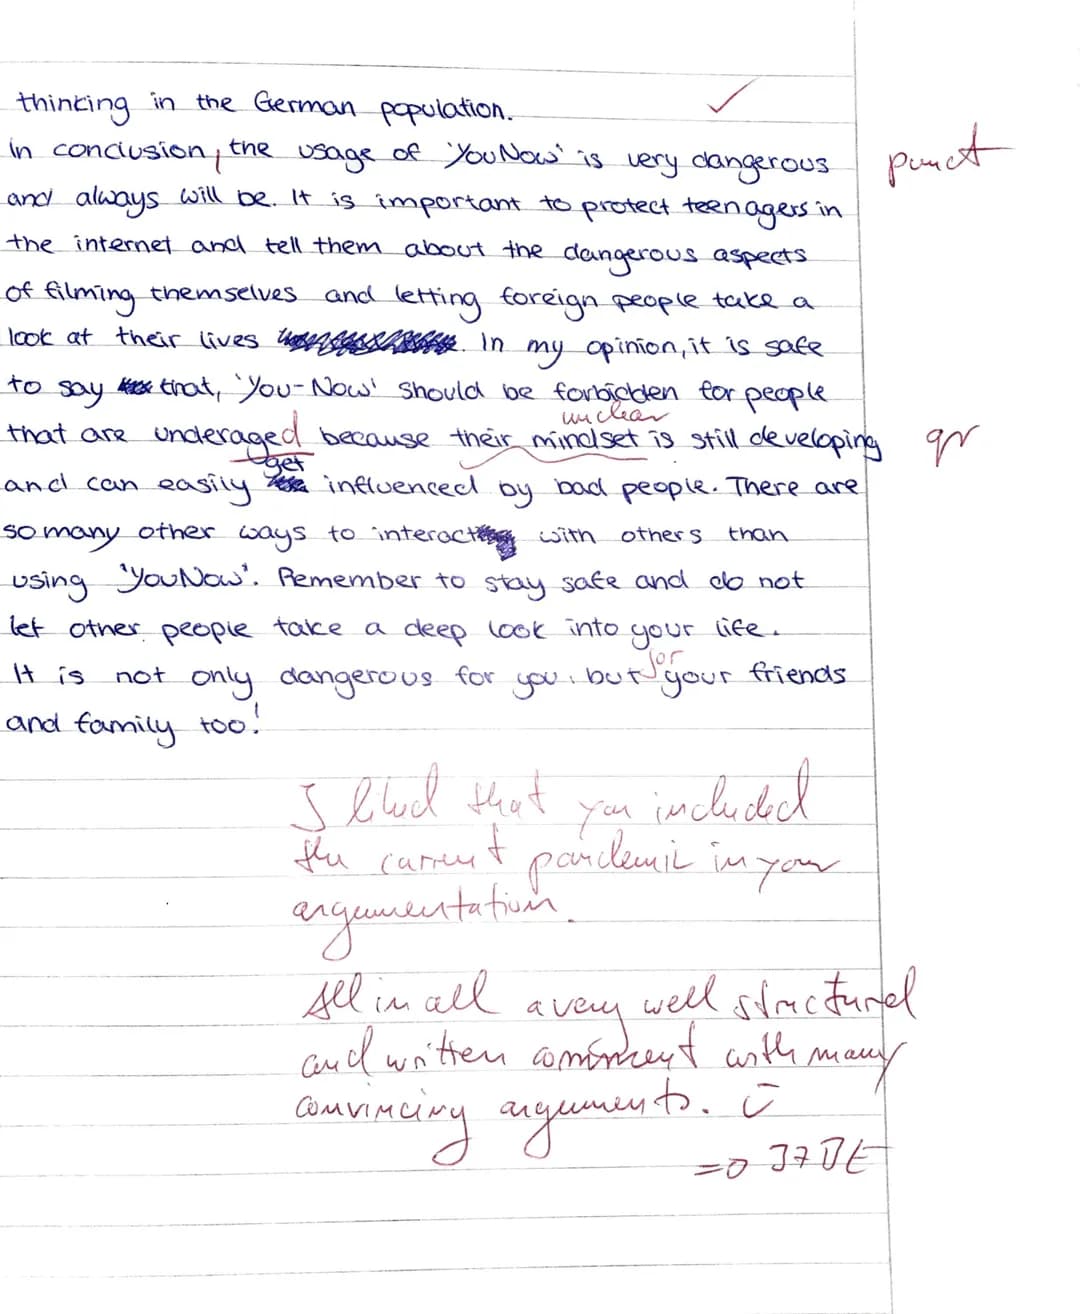 thinking in the German population.
In conclusion, the usage of 'YouNow' is very dangerous punct
and always will be. It is important to protect teenagers in
the internet and tell them about the dangerous aspects
of filming themselves and letting foreign people take a
look at their lives. In my opinion, it is safe
to say that, 'You-Now' should be forbidden for people
unclear
that are underaged because their mindset is still developing gr
get
and can easily influenced by bad people. There are
so many other ways to interact with others than
using 'YouNow'. Remember to stay safe and do not
let other people take a deep look into your life.
for
It is not only dangerous for you, but your friends
and family too!
I liked that you included
the current pandemic in your
argumentation.
All in all a very well structured
and written comment with many
convincing arguments.
=> 37 BE